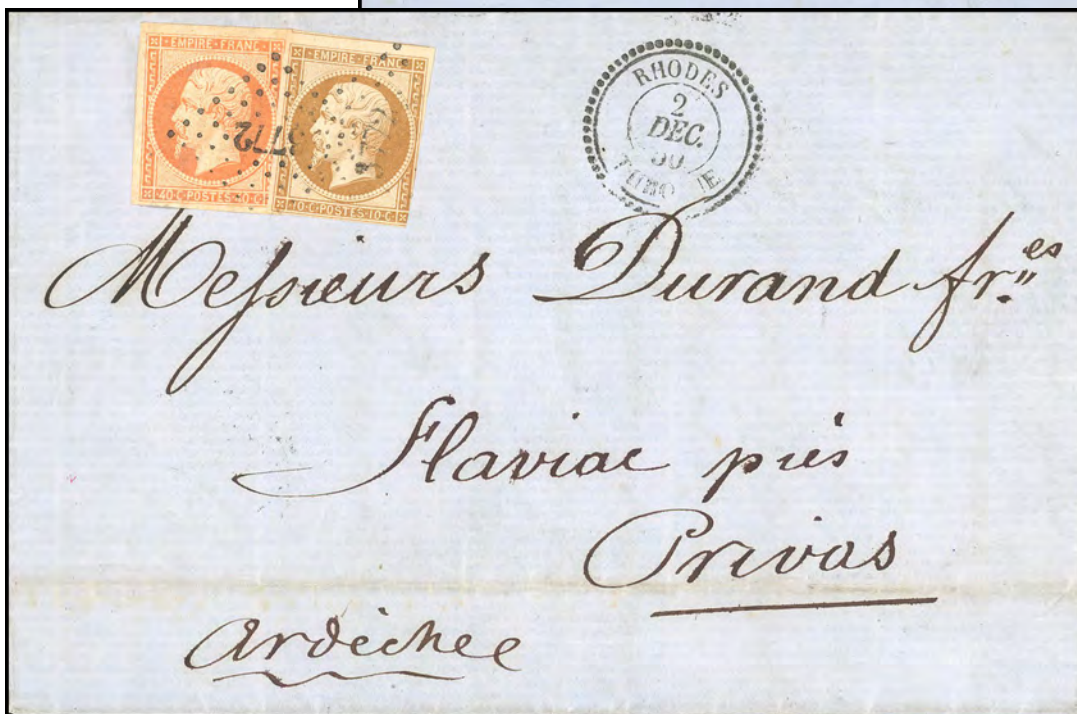 EMPIRE · FRANC ·
· 40 · C · POSTES · 40 · C ·
EMPIRE · FRANC ·
· 10 · C · POSTES · 10 · C ·
3772
RHODES
2
DEC.
Messieurs Durand fr.es
Flaviac près
Privas
Ardèchee